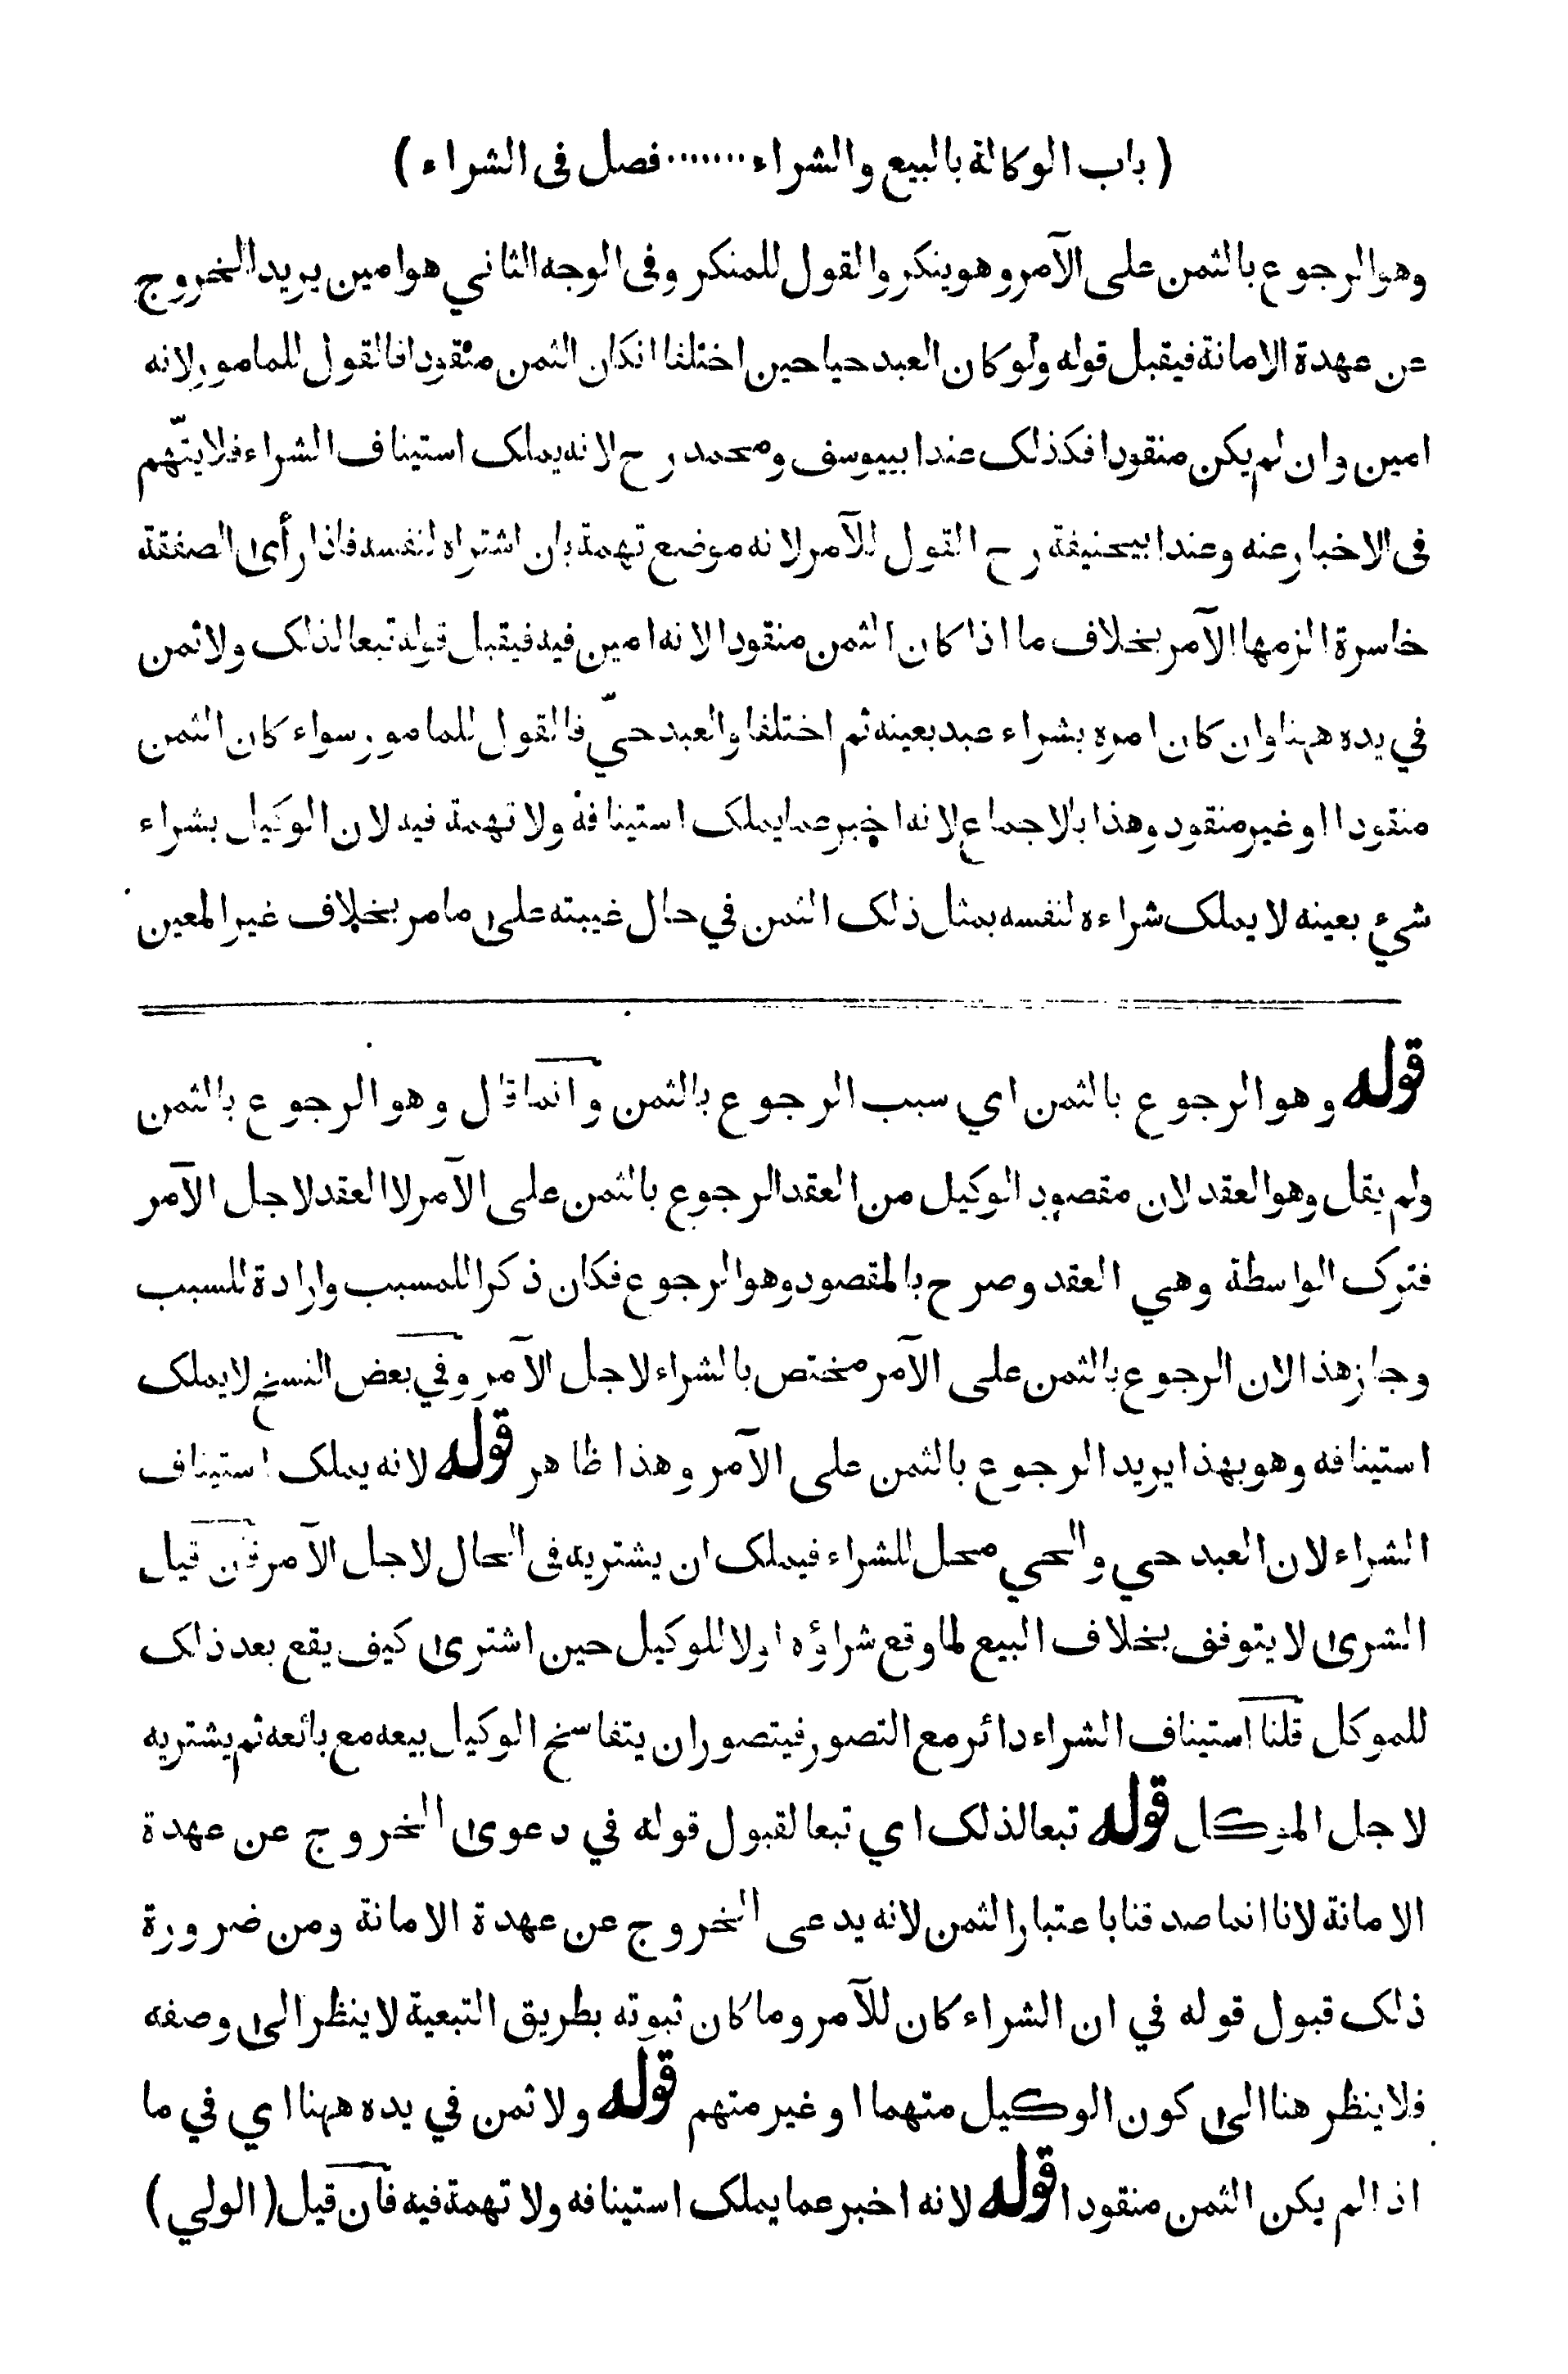 ( باب الوكالة بالبيع والشراء ....... فصل فى الشراء )
وهو الرجوع بالثمن على الآمر وهو ينكر والقول للمنكر وفى الوجه الثاني هو امين يريد الخروج
عن عهدة الامانة فيقبل قوله ولو كان العبد حيا حين اختلفا انكان الثمن منقودا فالقول للمامور لانه
امين وان لم يكن منقودا فكذلك عند ابييوسف ومحمد رح لانه يملك استيناف الشراء فلا يتّهم
فى الاخبار عنه وعند ابيحنيفة رح القول للآمر لانه موضع تهمة بان اشتراه لنفسه فاذا رأى الصفقة
خاسرة الزمها الآمر بخلاف ما اذا كان الثمن منقودا لانه امين فيه فيقبل قوله تبعا لذلك ولا ثمن
في يده ههنا وان كان امره بشراء عبد بعينه ثم اختلفا والعبد حيّ فالقول للمامور سواء كان الثمن
منقودا او غير منقود وهذا بالاجماع لانه اخبر عما يملك استينافه ولا تهمة فيه لان الوكيل بشراء
شيء بعينه لا يملك شراءه لنفسه بمثل ذلك الثمن في حال غيبته على ما مر بخلاف غير المعين
قوله وهو الرجوع بالثمن اي سبب الرجوع بالثمن وانما قال وهو الرجوع بالثمن
ولم يقل وهو العقد لان مقصود الوكيل من العقد الرجوع بالثمن على الآمر لا العقد لاجل الآمر
فترك الواسطة وهي العقد وصرح بالمقصود وهو الرجوع فكان ذكرا للمسبب وارادة للسبب
وجاز هذا لان الرجوع بالثمن على الآمر مختص بالشراء لاجل الآمر وفي بعض النسخ لا يملك
استينافه وهو بهذا يريد الرجوع بالثمن على الآمر وهذا ظاهر قوله لانه يملك استيناف
الشراء لان العبد حي والحي محل للشراء فيملك ان يشتريه فى الحال لاجل الآمر فان قيل
الشرى لا يتوقف بخلاف البيع لما وقع شراؤه اولا للوكيل حين اشترى كيف يقع بعد ذلك
للموكل قلنا استيناف الشراء دائر مع التصور فيتصور ان يتفاسخ الوكيل بيعه مع بائعه ثم يشتريه
لاجل الموكل قوله تبعا لذلك اي تبعا لقبول قوله في دعوى الخروج عن عهدة
الامانة لانا انما صدقنا باعتبار الثمن لانه يدعى الخروج عن عهدة الامانة ومن ضرورة
ذلك قبول قوله في ان الشراء كان للآمر وما كان ثبوته بطريق التبعية لا ينظر الى وصفه
فلا ينظر هنا الى كون الوكيل متهما او غير متهم قوله ولا ثمن في يده ههنا اي في ما
اذا لم يكن الثمن منقودا قوله لانه اخبر عما يملك استينافه ولا تهمة فيه فان قيل ( الولي )